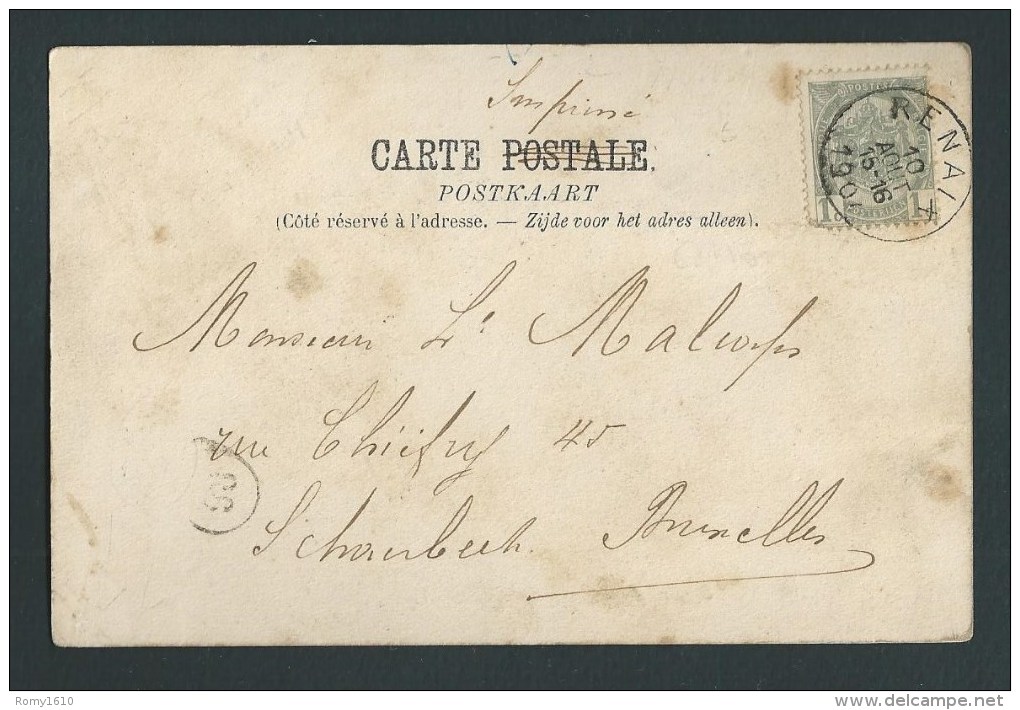 Imprimé
CARTE POSTALE.
POSTKAART
(Côté réservé à l'adresse. — Zijde voor het adres alleen).
POSTES
1 1
RENAIX
10
AOUT
15-16
1901
Monsieur
rue 45
Schaerbeek. Bruxelles
Romy1610
delcampe.net